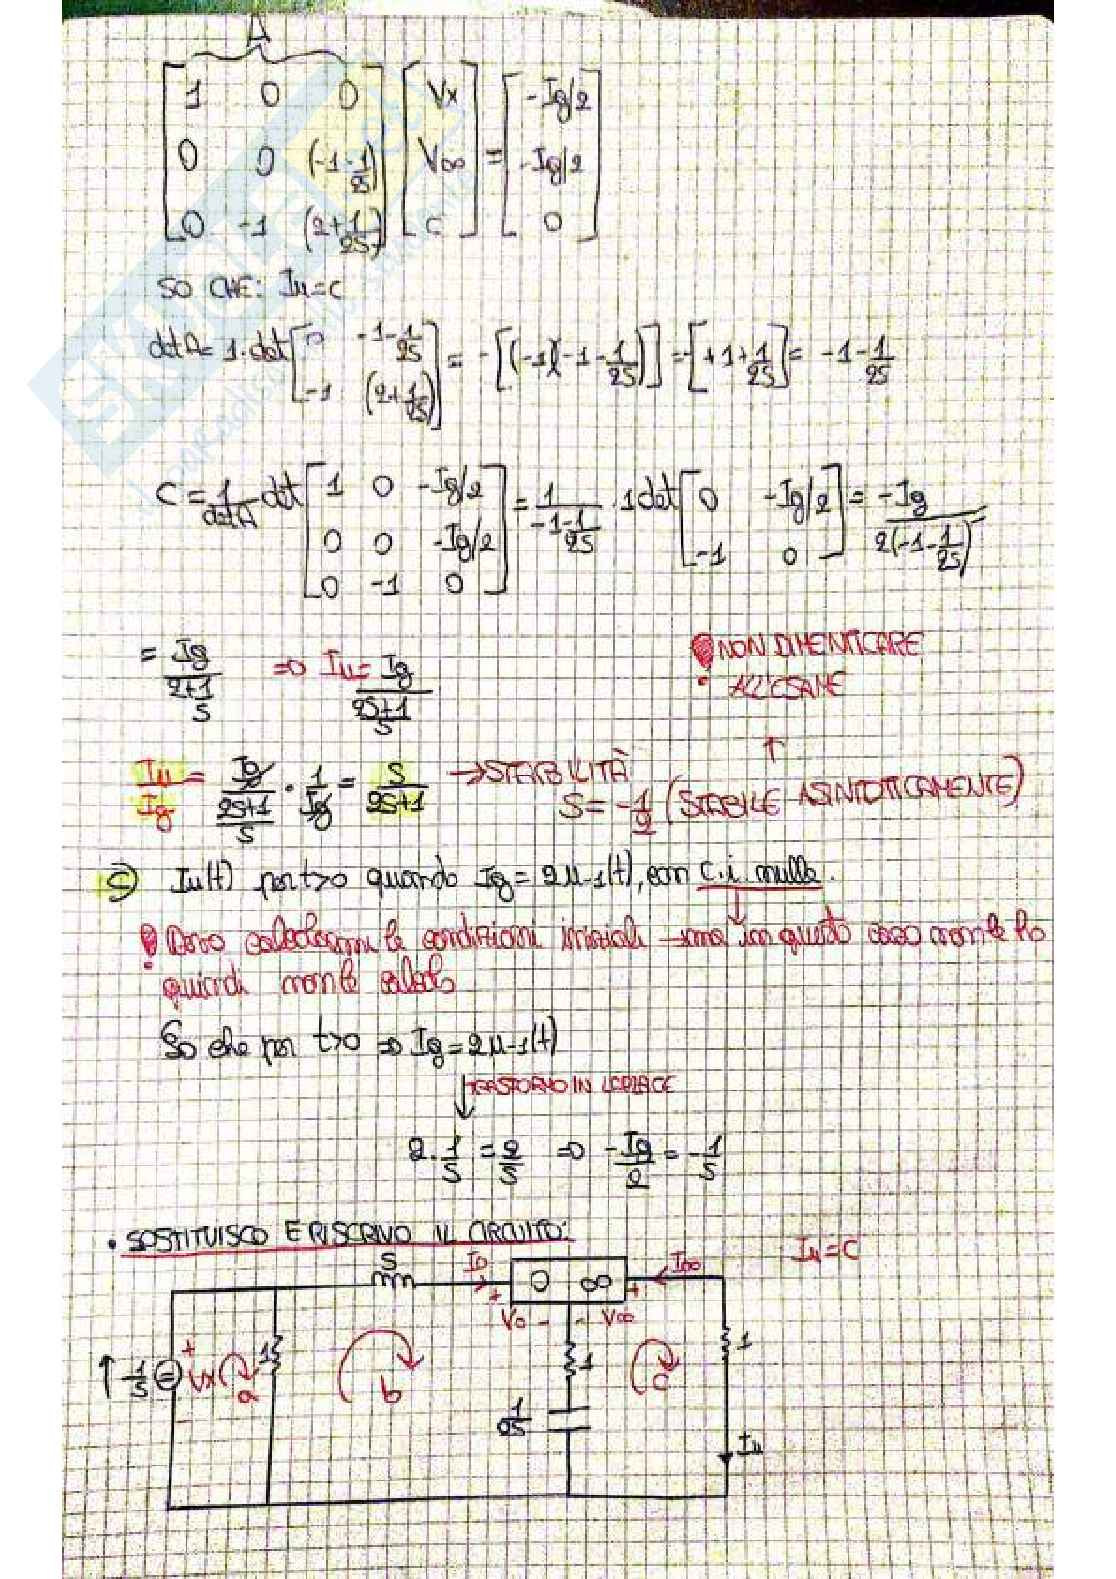 A
[1 0 0; 0 0 (-1-1/2S); 0 -1 (2+1/2S)] [Vx; V∞; C] = [-Ig/2; -Ig/2; 0]
SO CHE: Iu=C
detA= 1·det[0 -1-1/2S; -1 (2+1/2S)] = -[(-1)(-1-1/2S)] = -[+1+1/2S] = -1-1/2S
C = 1/detA det[1 0 -Ig/2; 0 0 -Ig/2; 0 -1 0] = 1/(-1-1/2S) · 1 det[0 -Ig/2; -1 0] = -Ig/(2(-1-1/2S)) =
= Ig/(2+1/S) => Iu= Ig/((2S+1)/S)
! NON DIMENTICARE
ALL'ESAME
↑
Iu/Ig = Ig/((2S+1)/S) · 1/Ig = S/(2S+1) → STABILITÀ
S= -1/2 (STABILE ASINTOTICAMENTE)
C) Iu(t) per t>0 quando Ig = 2μ-1(t), con c.i. nulle.
! Devo calcolarmi le condizioni iniziali → ma in questo caso non le ho
quindi non le calcolo
So che per t>0 => Ig = 2μ-1(t)
↓ TRASFORMO IN LAPLACE
2·1/S = 2/S => -Ig/2 = -1/S
• SOSTITUISCO E RISCRIVO IL CIRCUITO:
Iu=C
S I0 0 ∞ I∞
+ V0 - - V∞ +
↑ -1/S + Vx - a 1 b 1 c 1
1/2S
Iu